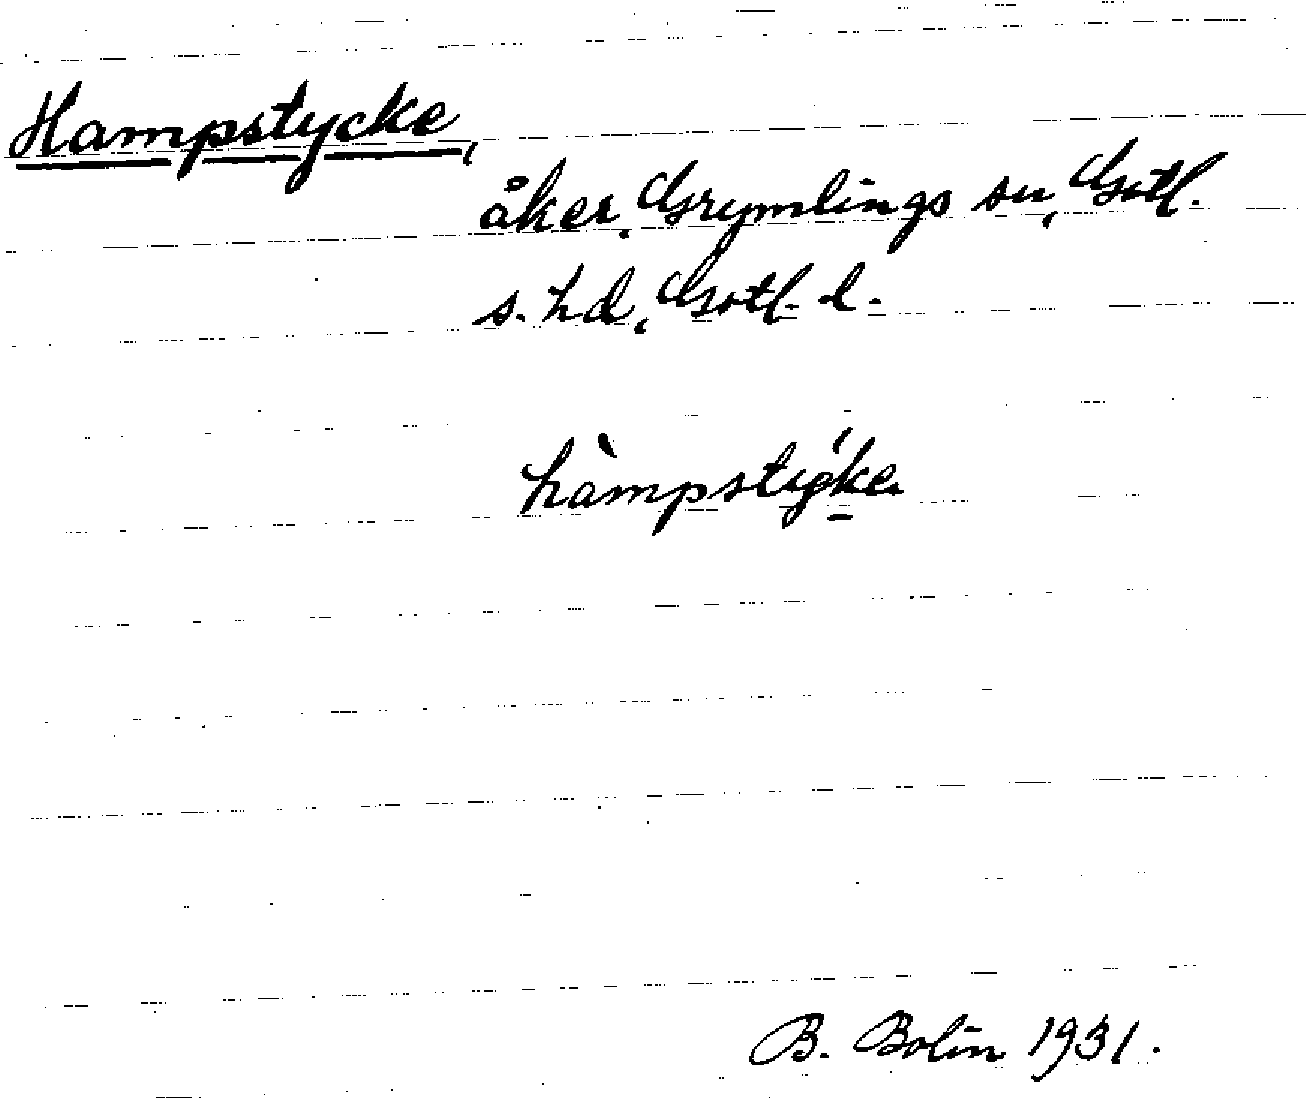 Hampstycke,
åker, Grymlings sn, Gotl.
s. hd, Gotl. l.
hàmpstýke
B. Bolin 1931.